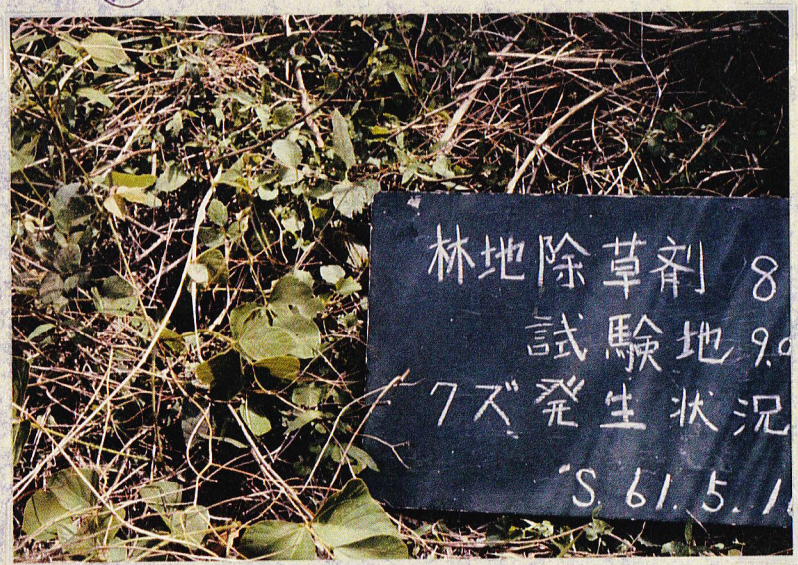 林地除草剤 8
試験地 9.0
クズ発生状況
S.61.5.1